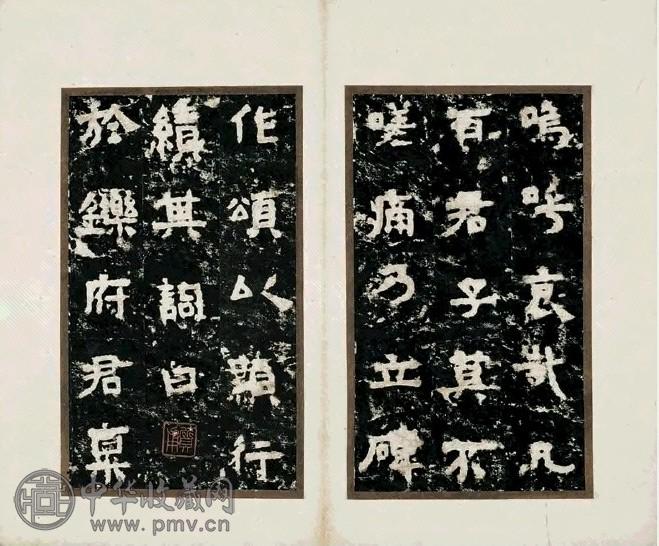 嗚呼哀哉凡
百君子其不
嗟痛乃立碑
作頌以顯行
績其詞曰
於鑠府君稟
中华收藏网
www.pmv.cn